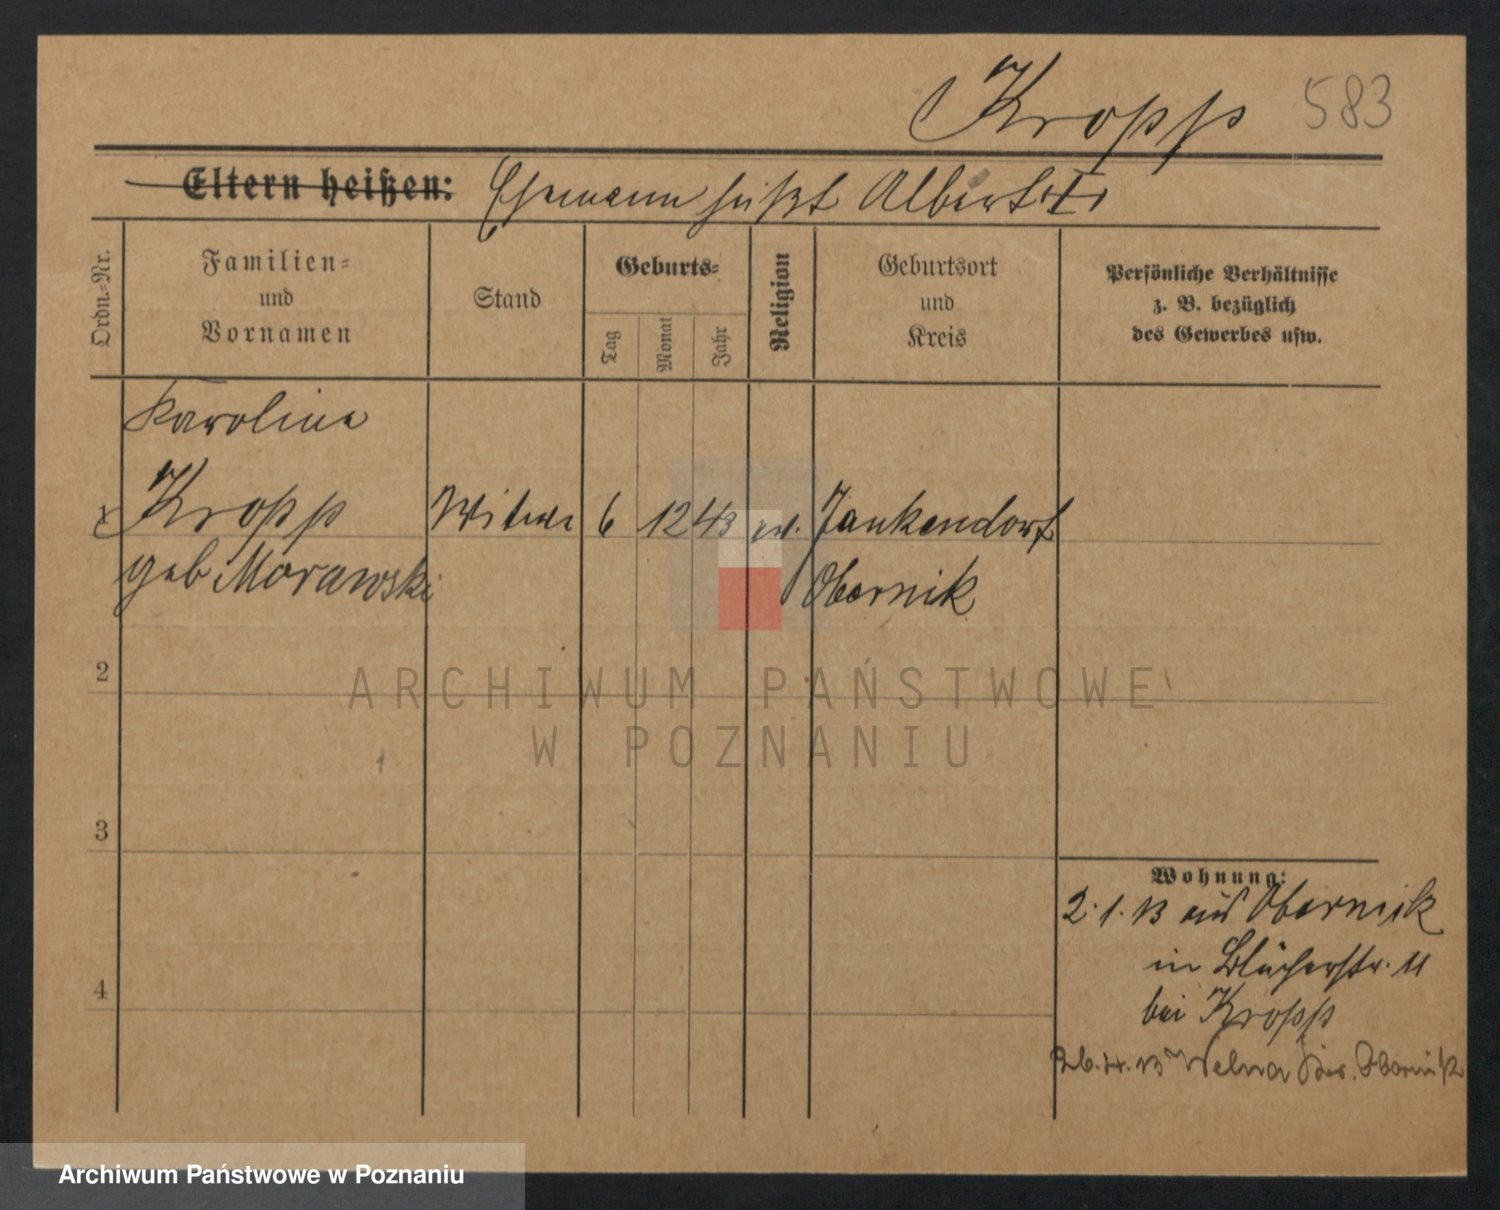 Kropp 583
Eltern heißen: Ehemann heißt Albert †
Ordn.-Nr.
Familien-
und
Vornamen
Stand
Geburts-
Tag
Monat
Jahr
Religion
Geburtsort
und
Kreis
Persönliche Verhältnisse
z. B. bezüglich
des Gewerbes usw.
Karoline
Kropp Witwe 6 12 43 ev. Jankendorf
geb Morawski Obornik
2
ARCHIWUM PAŃSTWOWE
W POZNANIU
3
4
Wohnung:
2.1.13 aus Obornik
in Blücherstr. 11
bei Kropp
26.4.13 Welna Obornik
Archiwum Państwowe w Poznaniu